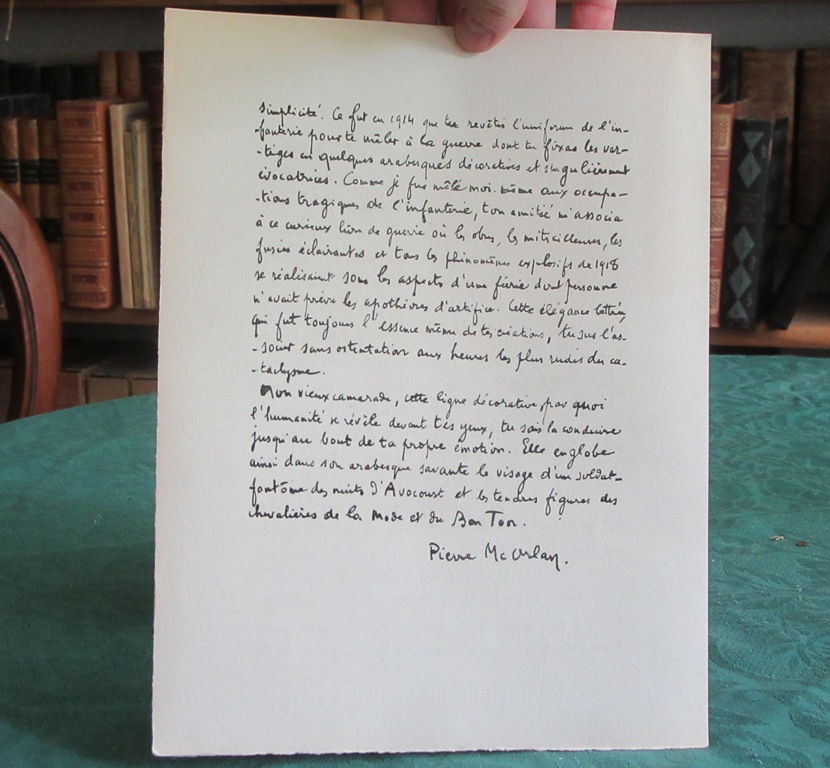 simplicité. Ce fut en 1914 que tu revêtis l'uniforme de l'in-
-fanterie pour te mêler à la guerre dont tu fixas les ver-
-tiges en quelques arabesques décoratives et singulièrement
évocatrices. Comme je fus mêlé moi-même aux occupa-
-tions tragiques de l'infanterie, ton amitié m'associa
à ce curieux livre de guerre où les obus, les mitrailleuses, les
fusées éclairantes et tous les phénomènes explosifs de 1918
se réalisaient sous les aspects d'une féerie dont personne
n'avait prévu les apothéoses d'artifice. Cette élégance lettrée,
qui fut toujours l'essence même de tes créations, tu sus l'as-
-socier sans ostentation aux heures les plus rudes du ca-
-taclysme.
Mon vieux camarade, cette ligne décorative par quoi
l'humanité se révèle devant tes yeux, tu sais la conduire
jusqu'au bout de ta propre émotion. Elle englobe
ainsi dans son arabesque savante le visage d'un soldat-
fantôme des nuits d'Avocourt et les tendres figures des
chevalières de la Mode et du Bon Ton.
Pierre Mc Orlan.